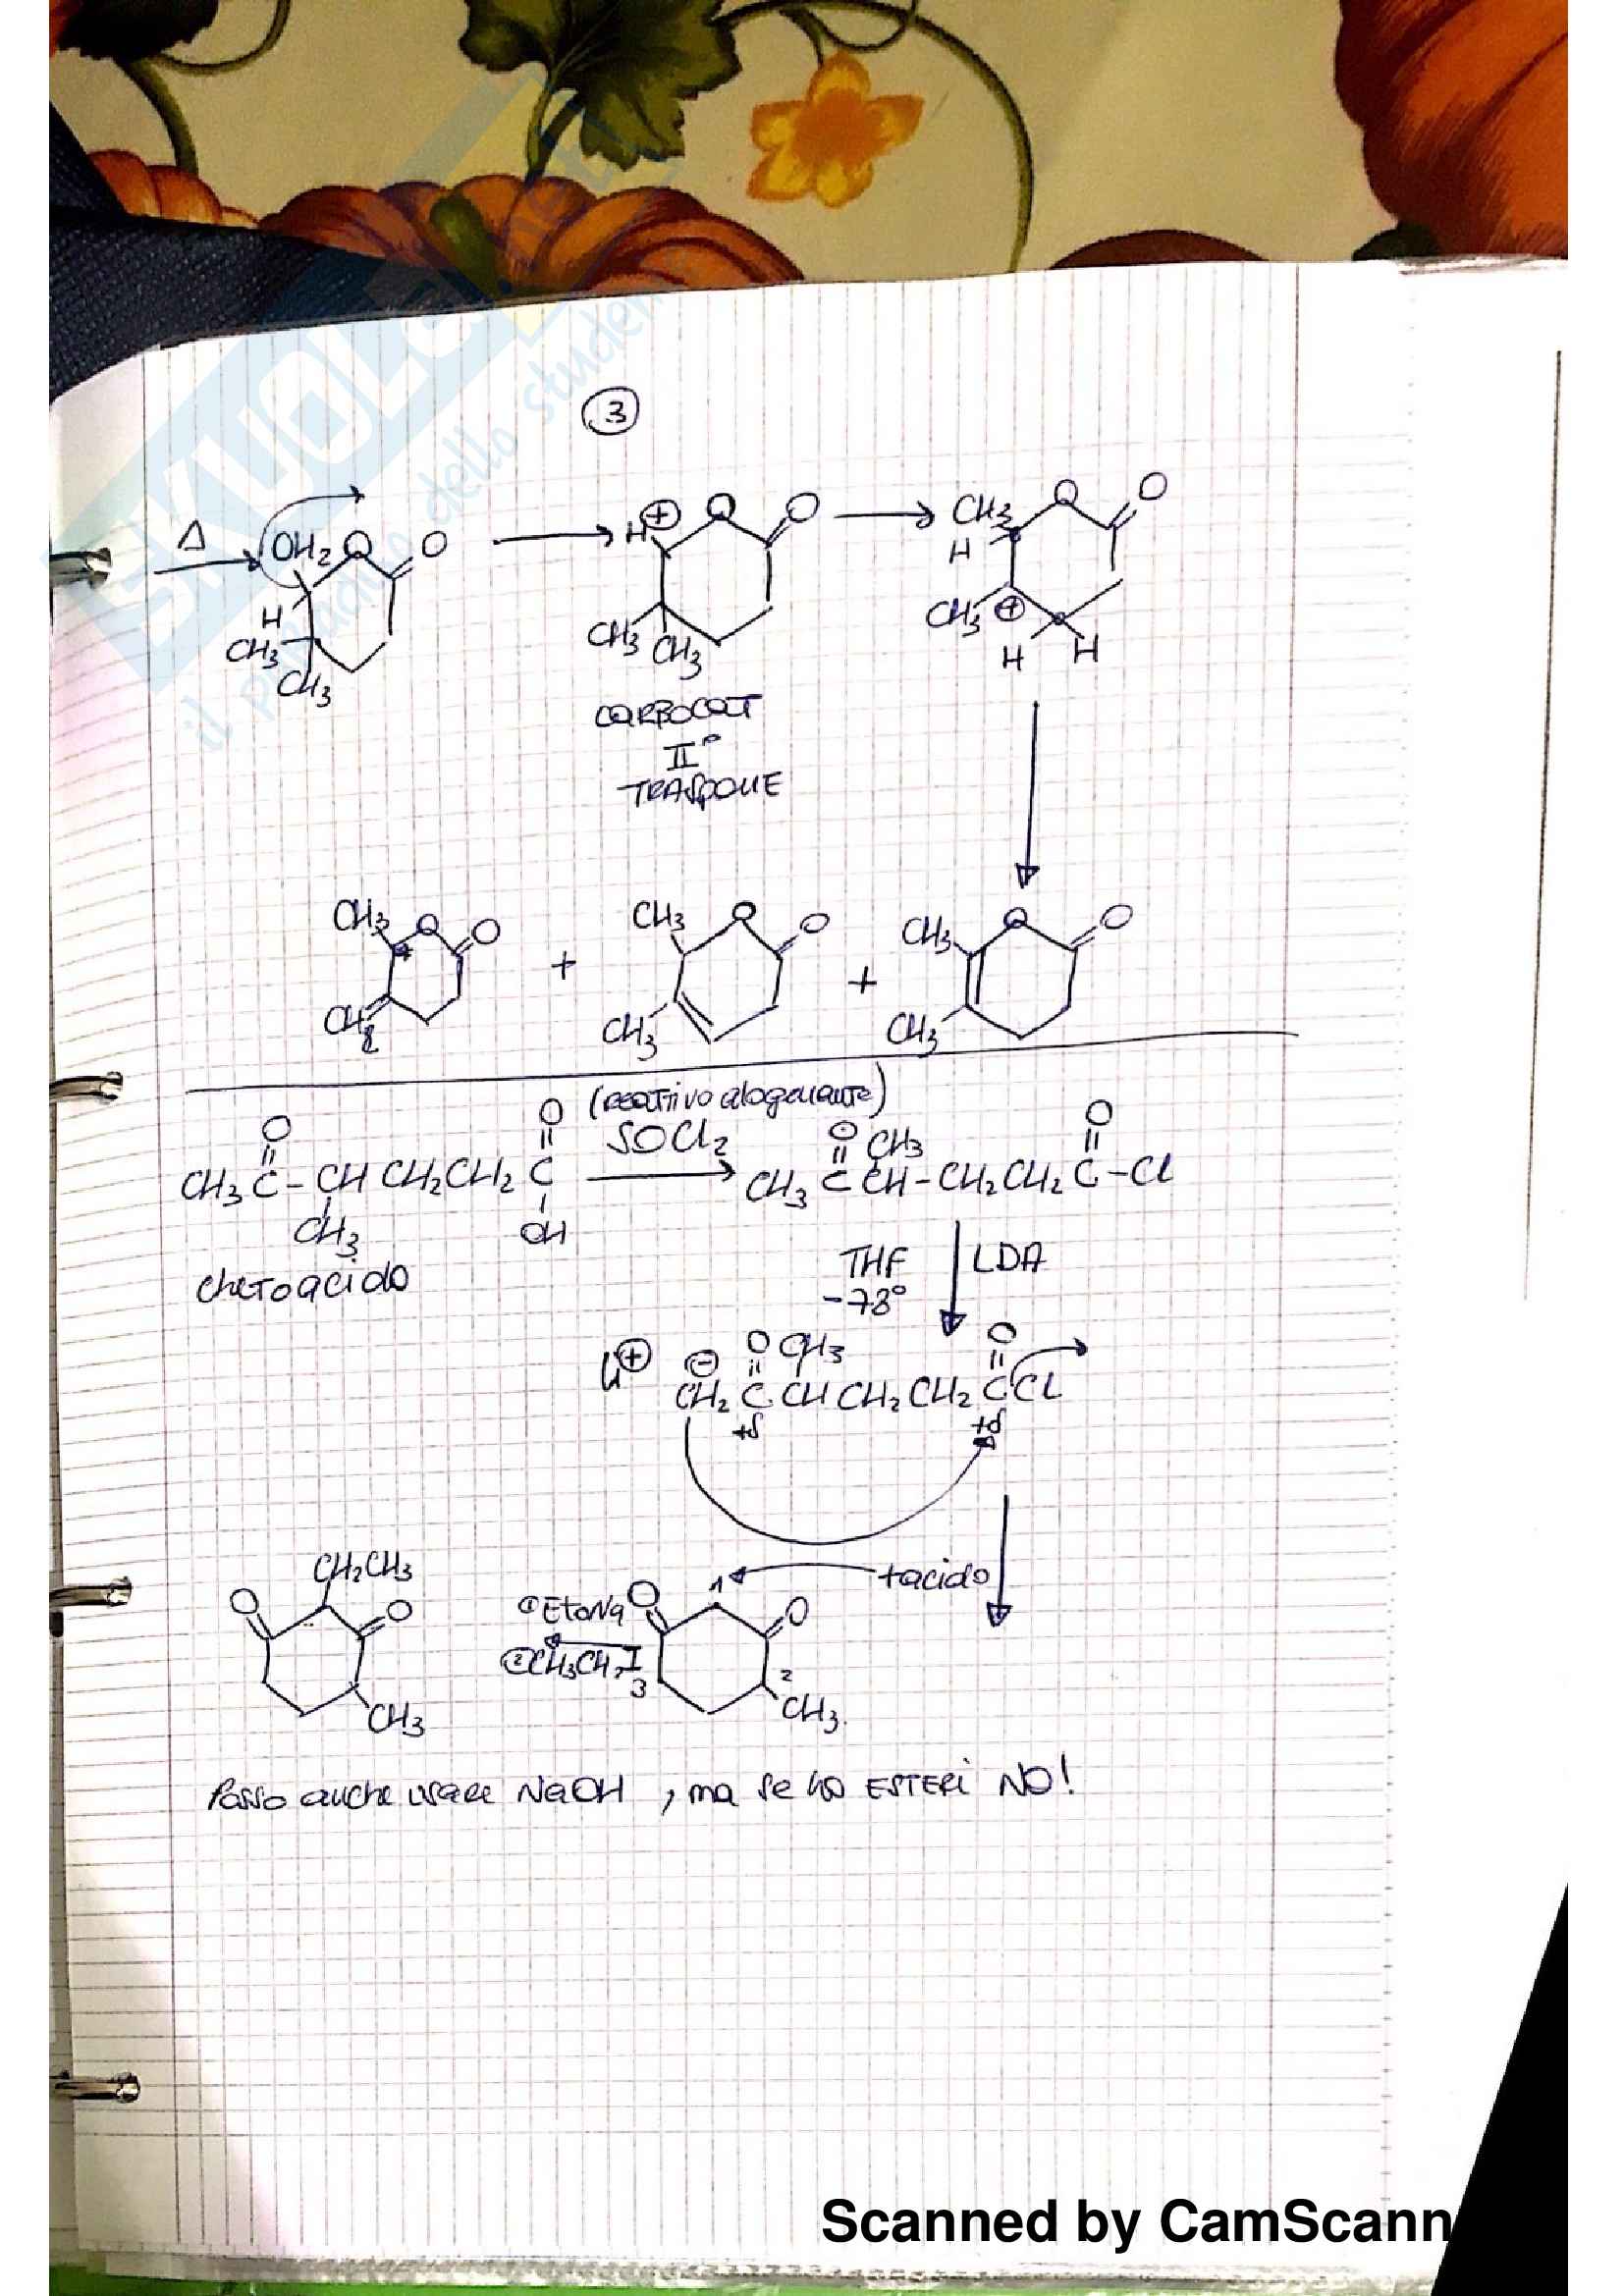 SKUOLA.net
il paradiso dello studente
3
Δ
OH2 O O
H
CH3
CH3
H ⊕ O O
CH3 CH3
CARBOCAT
II°
TRASPONE
CH3 O O
H
CH3 ⊕
H H
CH3 O O
CH2
+
CH3 O O
CH3
+
CH3 O O
CH3
(reattivo alogenante)
SOCl2
O O
CH3 C - CH CH2CH2 C
CH3 OH
chetoacido
O CH3 O
CH3 C CH - CH2CH2 C - Cl
THF LDA
-78°
Li⊕ ⊖ O CH3 O
CH2 C CH CH2 CH2 C Cl
+δ +δ
+acido
1
O O
2
3
CH3
① EtONa
② CH3CH2I
CH2CH3
O O
CH3
Posso anche usare NaOH , ma se ho ESTERI NO!
Scanned by CamScann